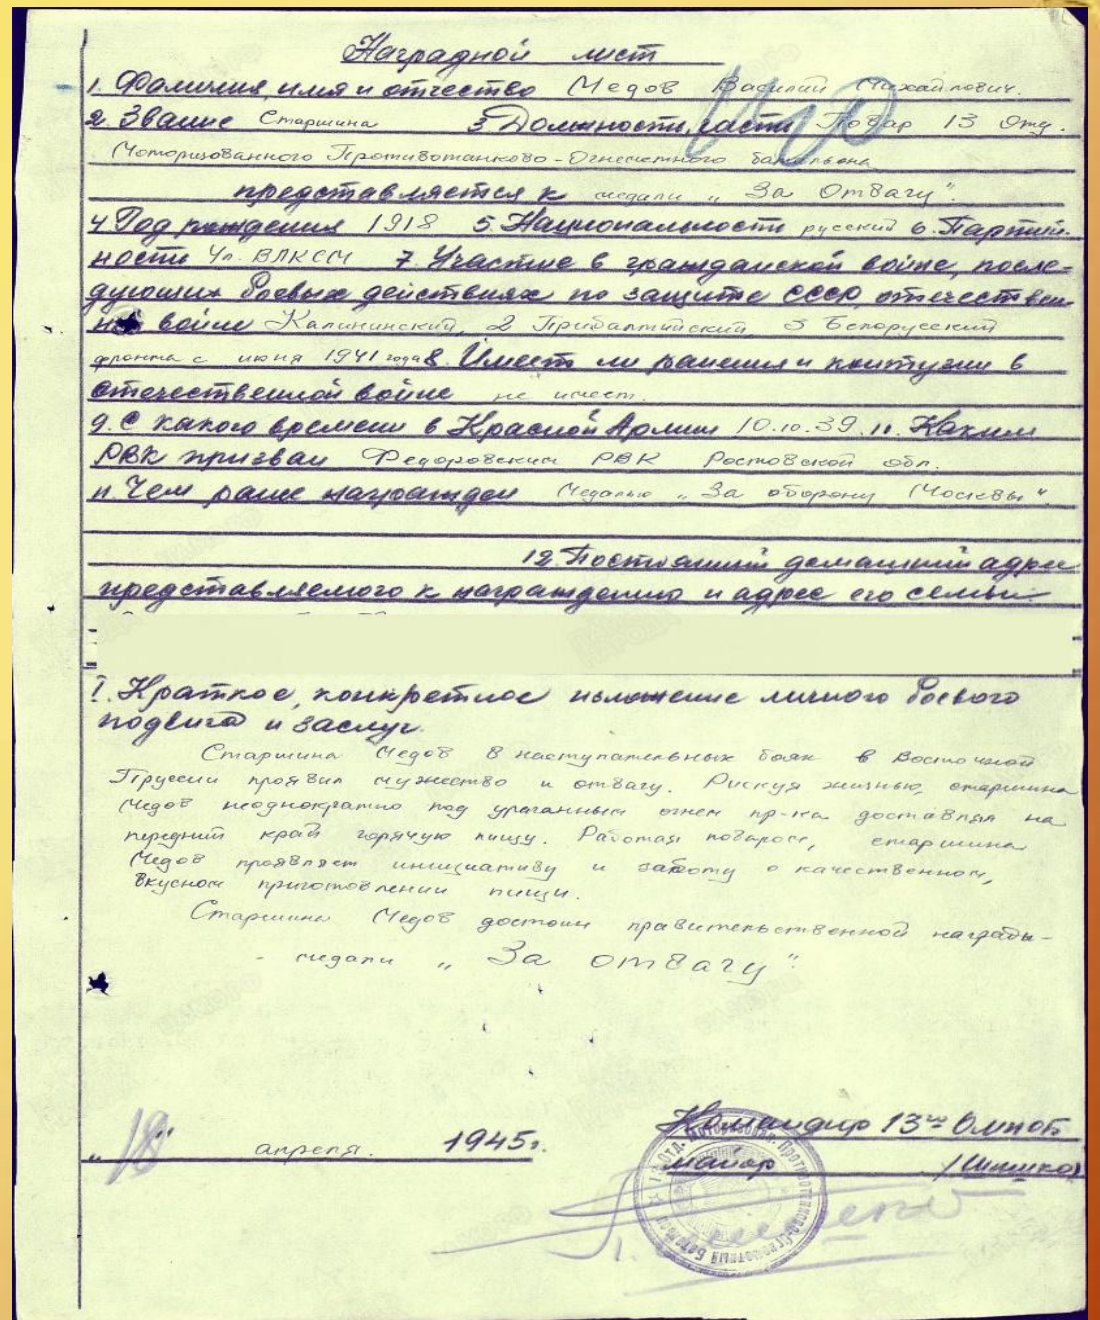 Наградной лист
1. Фамилия, имя и отчество Медов Василий Михайлович.
2. Звание Старшина 3 Должность, части Повар 13 Отд.
Моторизованного Противотанково-Огнеметного батальона
представляется к медали „За Отвагу".
4 Год рождения 1918 5. Национальность русский 6. Партий-
ность Чл. ВЛКСМ 7. Участие в гражданской войне, после-
дующих боевых действиях по защите СССР, отечествен
войне Калининский, 2 Прибалтийский, 3 Белорусский
фронта с июня 1941 года 8. Имеет ли ранения и контузии в
отечественной войне не имеет.
9. С какого времени в Красной Армии 10.10.39. 10. Каким
РВК призван Федоровским РВК Ростовской обл.
11. Чем ранее награжден Медалью „За оборону Москвы"
12. Постоянный домашний адрес
представляемого к награждению и адрес его семьи
I. Краткое, конкретное изложение личного боевого
подвига и заслуг.
Старшина Медов в наступательных боях в Восточной
Пруссии проявил мужество и отвагу. Рискуя жизнью, старшина
Медов неоднократно под ураганным огнем пр-ка доставлял на
передний край горячую пищу. Работая поваром, старшина
Медов проявляет инициативу и заботу о качественном,
вкусном приготовлении пищи.
Старшина Медов достоин правительственной награды-
- медали „За отвагу".
Командир 13го Омпоб
„18" апреля. 1945г.
майор /Шишко/